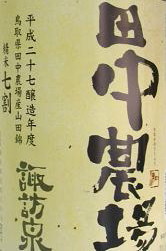 田中農場
平成二十七醸造年度
鳥取県田中農場産山田錦
精米七割
諏訪泉